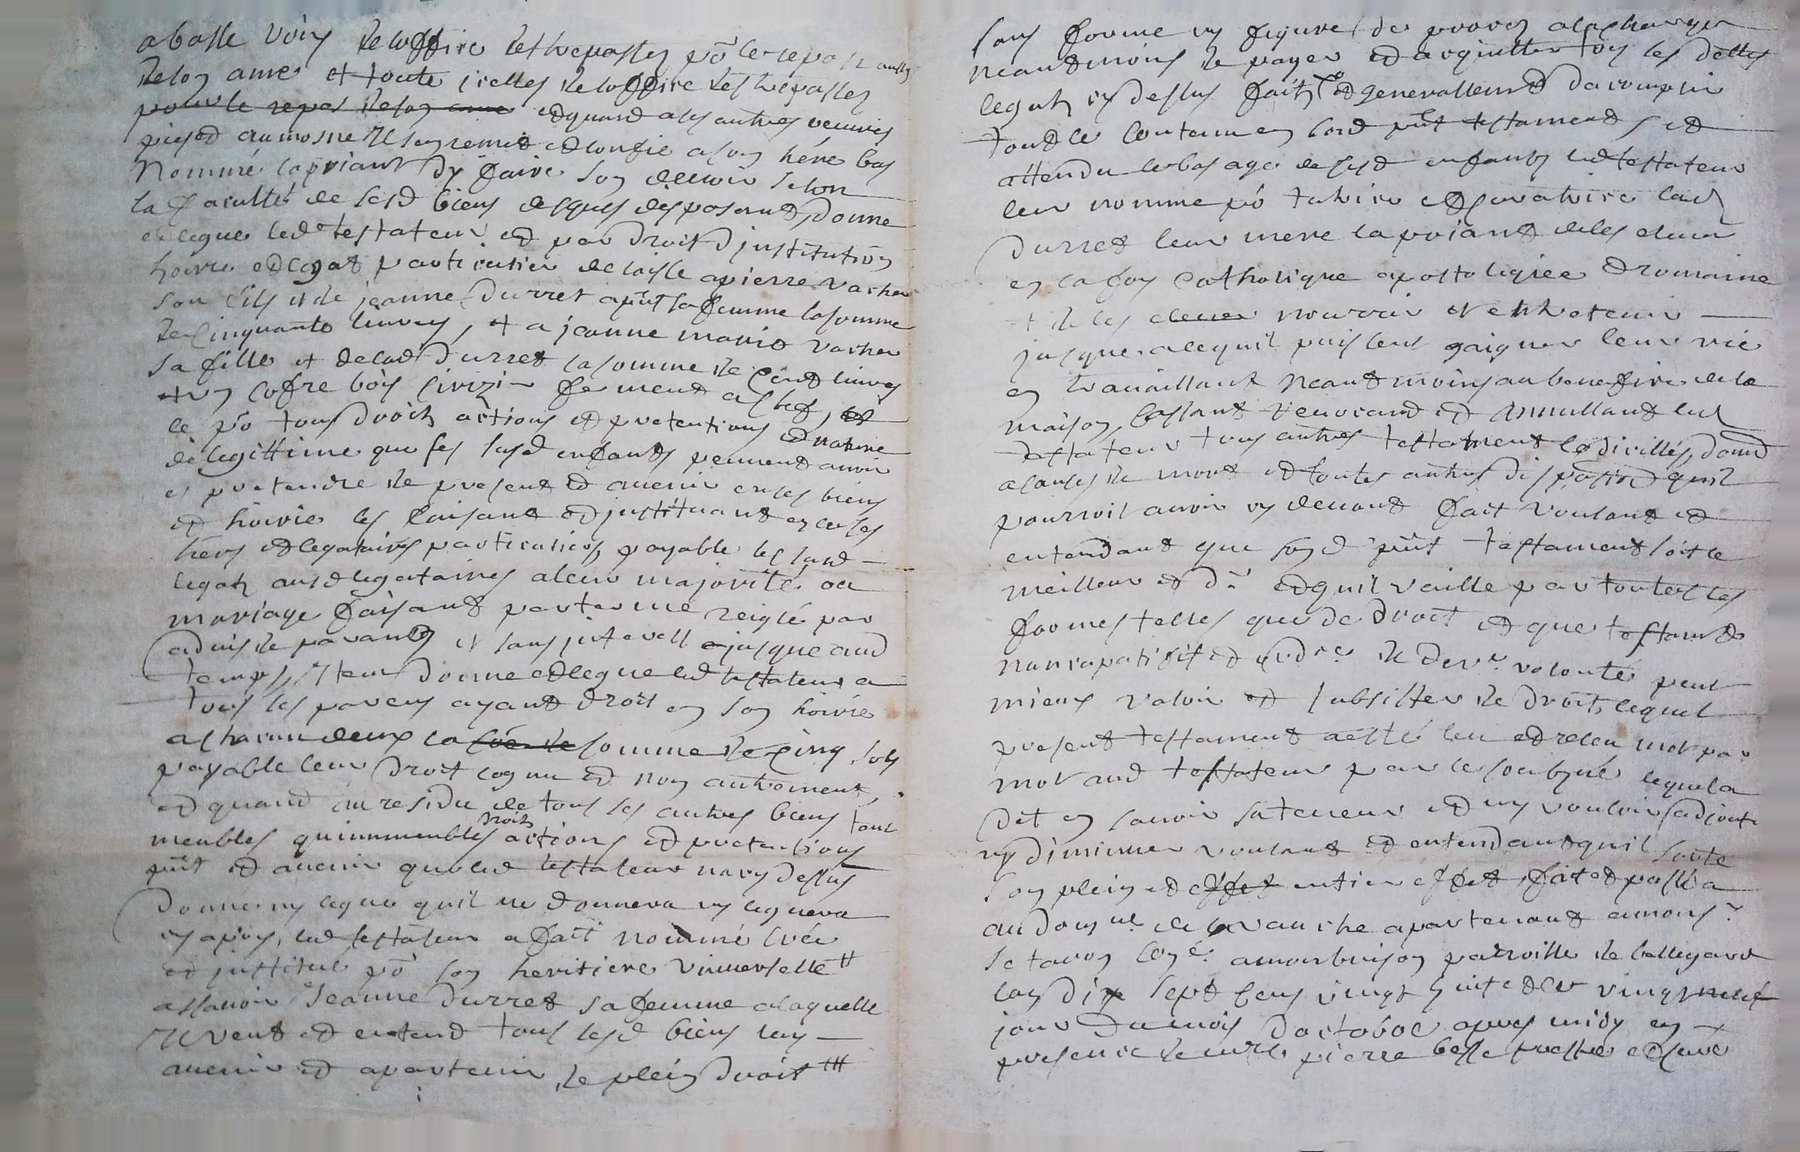 a basse voix de loffice des trepassez po le repos
de son ame et toute icelles de loffice des trepassez
pour le repos de son ame et quand a ses autres oeuvres
pies et aumosne Il sen remet et confie a son hére bas
Nommé la priant dy faire son devoir selon
la faculté de sesd biens desques disposant, donne
et legue led testateur et par droit dinstitution
hoirie et legat particulier delaisse a pierre vacher
son fils et de jeanne Durret sa femme la somme
de Cinquante livres, et a jeanne marie vacher
sa fille et de lad Durret la somme de Cent livres
et un coffre bois fermant a clef,
ce po tous droits actions et pretentions et nature
de legittime que ses susd enfants peuvent avoir
et pretendre de present et avenir en ses biens
et hoirie les faisant et instituant en ce ses
hers et legataires particuliers, payable les susd
legatz ausd legataires a leur majorité ou
mariage faisant par terme reiglé par
advis de parants et sans interestz jusque aud
temps, Item donne et legue led testateur a
tous les parens ayant droit en son hoirie
a chacun deux la somme de Cinq sols
payable leur droit cognu et non autrement,
et quand au residu de tous ses autres biens tant
meubles quimmeubles droits actions et pretentions
pnt et avenir que led testateur na cy dessus
donne ny legue quil ne donnera ny leguera
cy apres, led testateur a fait nommé créé
et institue po son heritiere universelle
assavoir Jeanne Durret sa femme a laquelle
Il veut et entend tous sesd biens
avenir et apartenir, de plein droit
sans forme ny figure de proces a la charge
neantmoins de payer et acquitter tous les dettes
legatz cy dessus faitz et generallement dacomplir
tout le contenu en son pnt testament, et
attendu le bas age de sesd enfants led testateur
leur nomme po tutrice et curatrice lad
Durret leur mere la priant de les elever
en la foy Catholique apostolique et romaine
et de les elever nourrir et entretenir
jusque a ce quil puissent gaigner leur vie
en travaillant neantmoins au benefice de la
maison, Cassant revocand et annullant led
testateur tous autres testament codicilles, donnd
a causes de mort et toutes autres disposions quil
pourroit avoir cy devant fait voulant et
entendant que son d pnt testament soit le
meilleur et dr et quil vaille par toutes les
formes telles que de droit et que testamt
nuncupatif et ordre de dere volonté peut
mieux valoir et subsister de droit, lequel
present testament a esté leu et releu mot par
mot aud testateur par le soubzne lequel a
dit en savoir sa teneur et ny vouloir adjoute
ny diminuer voulant et entendant quil sorte
son plein et effet entier effet, fait et passé a
au domne de apartenant a mons.
amoubuison parroisse de bellegard
lan dix sept Cens vingt huit et le vingt neuf
jour du mois doctobre apres midy en
presence de mre pierre besse prestre et curé